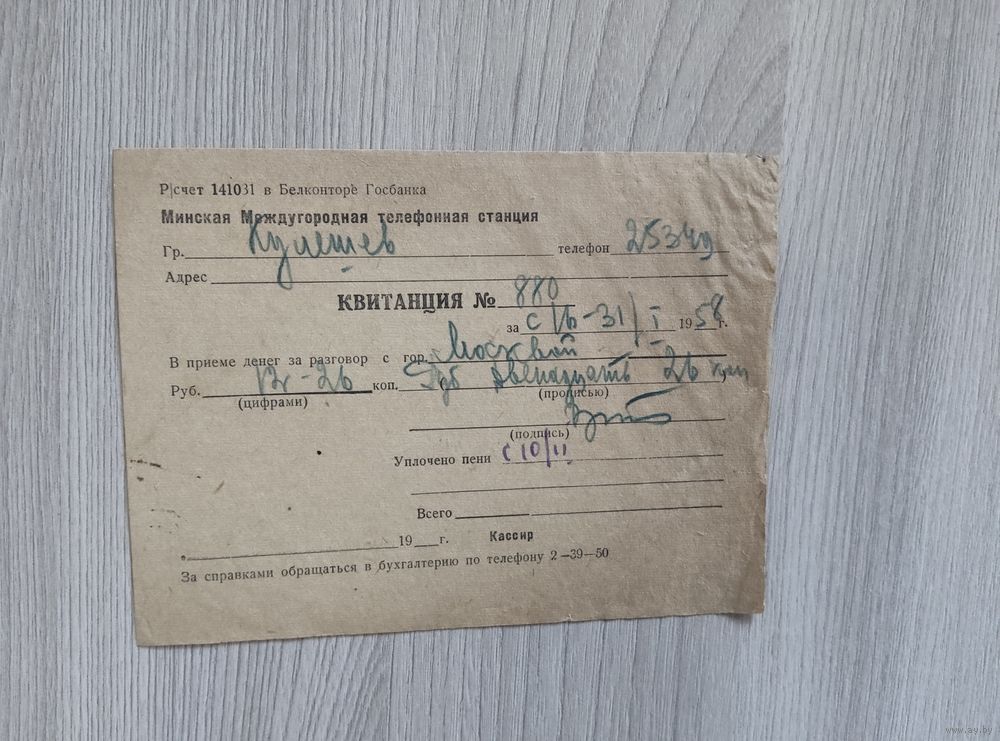 Р|счет 141031 в Белконторе Госбанка
Минская Междугородная телефонная станция
Гр. Кулешев телефон 25349
Адрес
КВИТАНЦИЯ № 880
за с 16-31/I 1958 г.
В приеме денег за разговор с гор. Москвой
Руб. 12-26 коп. Руб двенадцать 26 коп
(цифрами) (прописью)
(подпись)
Уплочено пени с 10/II
Всего
19 г. Кассир
За справками обращаться в бухгалтерию по телефону 2-39-50
www.ay.by